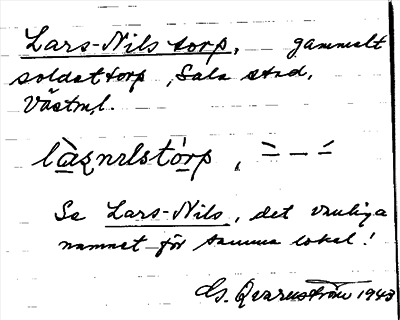 Lars-Nils torp, gammalt
soldattorp, Sala stad,
Västml.
làʒnɪlstórp,
Se Lars-Nils, det vanliga
namnet för samma lokal!
G. Qvarnström 1943